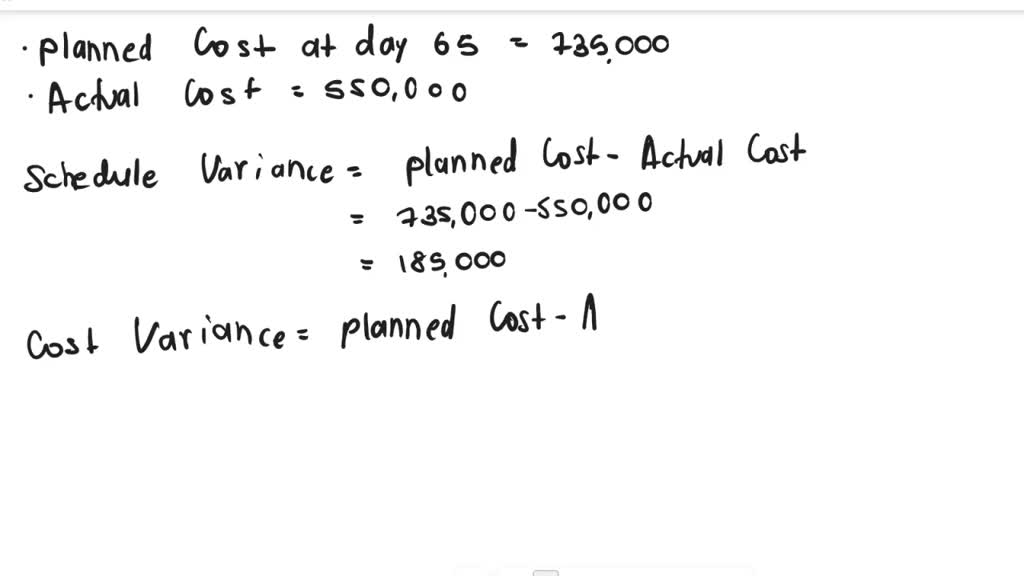 · planned Cost at day 65 = 735,000
· Actual Cost = 550,000
Schedule Variance = planned Cost - Actual Cost
= 735,000 - 550,000
= 185,000
Cost Variance = planned Cost - A